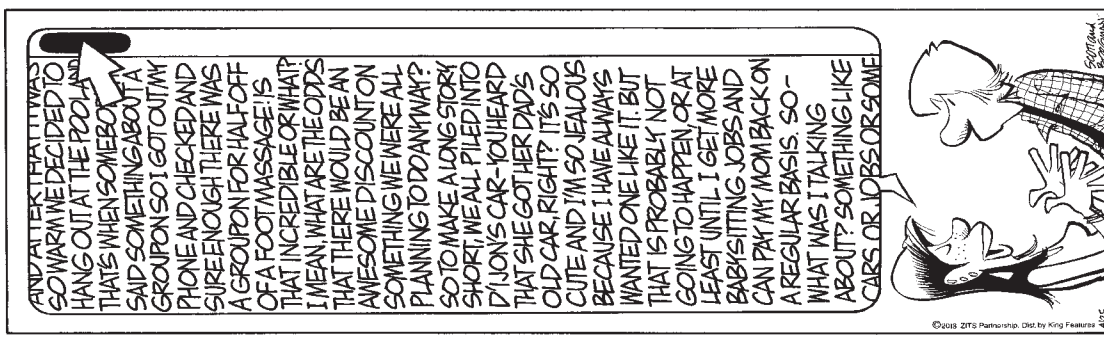 AND AFTER THAT IT WAS
SO WARM WE DECIDED TO
HANG OUT AT THE POOL AND
THAT'S WHEN SOMEBODY
SAID SOMETHING ABOUT A
GROUPON SO I GOT OUT MY
PHONE AND CHECKED AND
SURE ENOUGH THERE WAS
A GROUPON FOR HALF OFF
OF A FOOT MASSAGE! IS
THAT INCREDIBLE OR WHAT?
I MEAN, WHAT ARE THE ODDS
THAT THERE WOULD BE AN
AWESOME DISCOUNT ON
SOMETHING WE WERE ALL
PLANNING TO DO ANYWAY?
SO TO MAKE A LONG STORY
SHORT, WE ALL PILED INTO
D'IJON'S CAR-YOU HEARD
THAT SHE GOT HER DAD'S
OLD CAR, RIGHT? IT'S SO
CUTE AND I'M SO JEALOUS
BECAUSE I HAVE ALWAYS
WANTED ONE LIKE IT. BUT
THAT IS PROBABLY NOT
GOING TO HAPPEN, OR AT
LEAST UNTIL I GET MORE
BABYSITTING JOBS AND
CAN PAY MY MOM BACK ON
A REGULAR BASIS. SO-
WHAT WAS I TALKING
ABOUT? SOMETHING LIKE
CARS OR JOBS OR SOME
©2013 ZITS Partnership. Dist. by King Features
4/25
SCOTT and BORGMAN